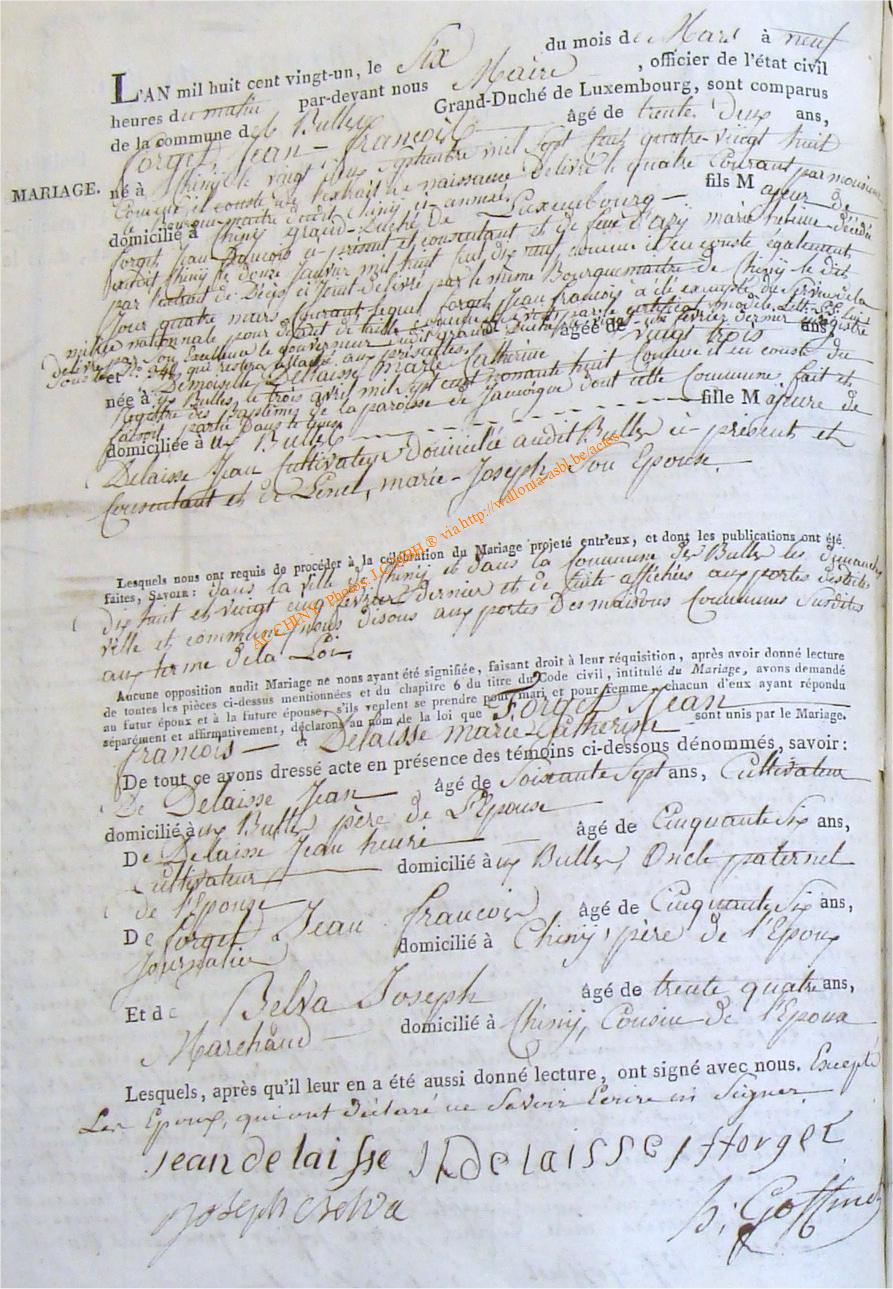 L'AN mil huit cent vingt-un, le Six du mois de Mars à neuf
heures du matin par-devant nous Maire , officier de l'état civil
de la commune de Bulles Grand-Duché de Luxembourg, sont comparus
Forget, Jean-François âgé de trente deux ans,
MARIAGE.
né à Chiny le vingt Septembre mil Sept Cent quatre-vingt huit
Comme il conste par l'extrait de naissance délivré le quatre Courant par monsieur
le Bourguemaitre Chiny ci annexé fils Majeur de
domicilié à Chiny grand-Duché de Luxembourg
forget Jean François ci-présent et consentant et de feue marie décédée
audit Chiny le douze Janvier mil huit cent dix neuf, comme il en conste également
par l'extrait de Décès délivré par le même Bourguemaitre de Chiny le dit
Jour quatre mars Courant, lequel forget Jean François a été exempté du Service de la
milice nationale pour défaut de taille
délivré par Son Excellence le gouverneur du grand Duché février dernier registre
Sous le N° qui restera annexé aux présentes. âgée de vingt trois ans
et Demoiselle Delaisse marie Catherine
née à Bulles, le trois avril mil sept cent nonante huit Comme il en conste du
Registre des Baptêmes de la paroisse de Jamoigne dont cette Commune fait et
faisait partie Dans le tems fille Majeure de
domiciliée à Bulles
Delaisse Jean Cultivateur Domicilié audit Bulles ci-présent et
Consentant et de marie-Joseph Son Epouse.
AC CHINY Photos via http://wallonia-asbl.be/actes
Lesquels nous ont requis de procéder à la célébration du Mariage projeté entr'eux, et dont les publications ont été
faites, SAVOIR: dans la ville de Chiny et dans la Commune de Bulles les dimanches
Dix huit et vingt cinq février Dernier et de suite affichées aux portes desdites
ville et commune nous Disons aux portes Des maisons Communes Susdites
aux terme de la Loi.
Aucune opposition audit Mariage ne nous ayant été signifiée, faisant droit à leur réquisition, après avoir donné lecture
de toutes les pièces ci-dessus mentionnées et du chapitre 6 du titre du Code civil, intitulé du Mariage, avons demandé
au futur époux et à la future épouse, s'ils veulent se prendre pour mari et pour femme, chacun d'eux ayant répondu
séparément et affirmativement, déclarons au nom de la loi que Forget Jean
françois et Delaisse marie Catherine sont unis par le Mariage.
De tout ce avons dressé acte en présence des témoins ci-dessous dénommés, savoir:
De Delaisse Jean âgé de Soixante Sept ans, Cultivateur
domicilié à Bulles, père de l'Epouse
De Delaisse Jean henri âgé de Cinquante Six ans,
Cultivateur domicilié à Bulles, Oncle paternel
de l'Epouse
De forget Jean François âgé de Cinquante Six ans,
Journalier domicilié à Chiny, père de l'Epoux
Et de Belva Joseph âgé de trente quatre ans,
Marchand domicilié à Chiny, Cousin de l'Epoux
Lesquels, après qu'il leur en a été aussi donné lecture, ont signé avec nous. Excepté
Les Epoux, qui ont déclaré ne Savoir Ecrire ni Signer.
jean delaisse J h delaisse J f forget
joseph belva h: Goffinet